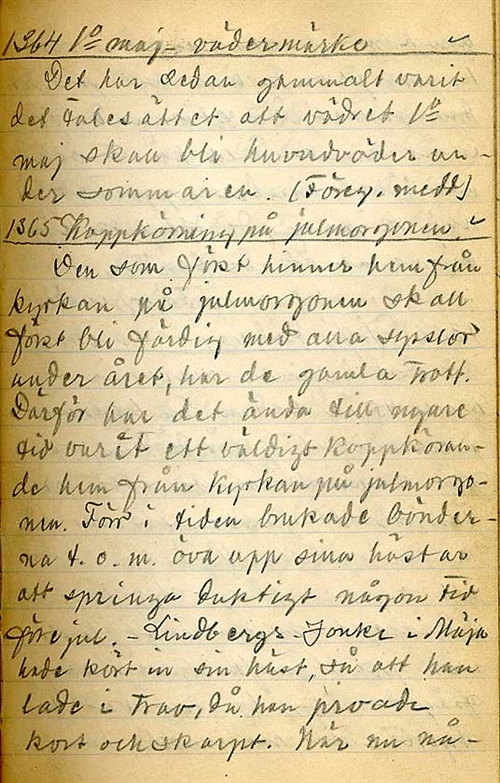 1364 1º maj - vädermärke
Det har sedan gammalt varit
det talesättet att vädret 1º
maj skall bli huvudväder un-
der sommaren. (Föreg. medd)
1365 Kappkörning på julmorgonen.
Den som först hinner hem från
kyrkan på julmorgonen skall
först bli färdig med alla sysslor
under året, har de gamla trott.
Därför har det ända till nyare
tid varit ett väldigt kappköran-
de hem från kyrkan på julmorgo-
nen. Förr i tiden brukade bönder-
na t.o.m. öva upp sina hästar
att springa duktigt någon tid
före jul. - Lindbergs-Jonke i
hade kört in sin häst, så att han
lade i trav, då han provade
kort och skarpt. När nu nå-